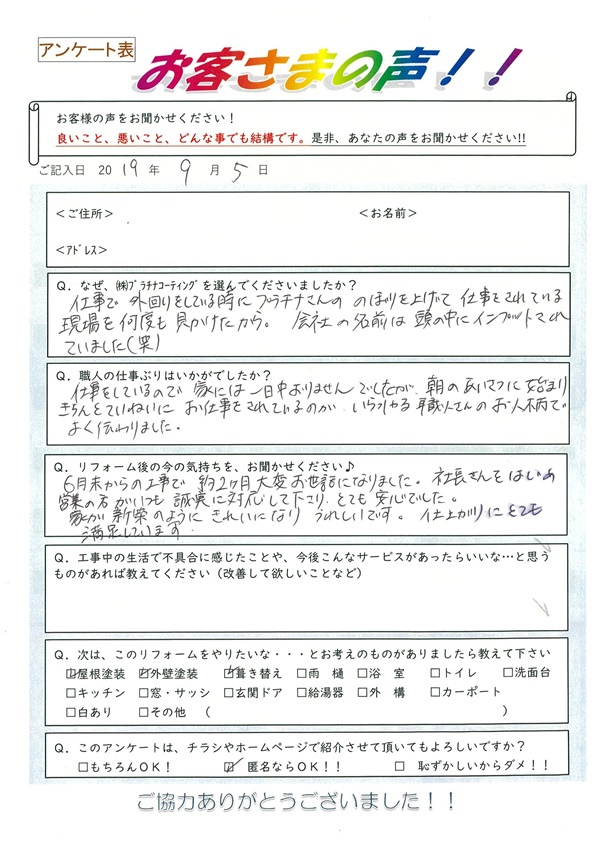 アンケート表
お客さまの声！！
お客様の声をお聞かせください！
良いこと、悪いこと、どんな事でも結構です。是非、あなたの声をお聞かせください!!
ご記入日 2019 年 9 月 5 日
＜ご住所＞ ＜お名前＞
＜ｱﾄﾞﾚｽ＞
Q．なぜ、㈱ﾌﾟﾗﾁﾅｺｰﾃｨﾝｸﾞを選んでくださいましたか？
仕事で 外回りをしている時に プラチナさんの のぼりを上げて 仕事をされている
現場を何度も見かけたから。 会社の名前は 頭の中にインプットされ
ていました(笑)
Q．職人の仕事ぶりはいかがでしたか？
仕事をしているので 家には 一日中おりませんでしたが、朝のあいさつに始まり
きちんとていねいに お仕事をされているのが いらっしゃる 職人さんの お人柄で
よく伝わりました。
Q．リフォーム後の今の気持ちを、お聞かせください♪
6月末からの工事で 約2ヶ月 大変お世話になりました。 社長さんをはじめ
営業の方がいつも 誠実に対応して下さり とても安心でした。
家が 新築のように きれいになり うれしいです。 仕上がりにとても
満足しています
Q．工事中の生活で不具合に感じたことや、今後こんなサービスがあったらいいな…と思う
ものがあれば教えてください（改善して欲しいことなど）
Q．次は、このリフォームをやりたいな・・・とお考えのものがありましたら教えて下さい
☑屋根塗装 ☑外壁塗装 ☑葺き替え □雨 樋 □浴 室 □トイレ □洗面台
□キッチン □窓・サッシ □玄関ドア □給湯器 □外 構 □カーポート
□白あり □その他 （ ）
Q．このアンケートは、チラシやホームページで紹介させて頂いてもよろしいですか？
□もちろんOK！ ☑ 匿名ならOK！！ □ 恥ずかしいからダメ！！
ご協力ありがとうございました！！